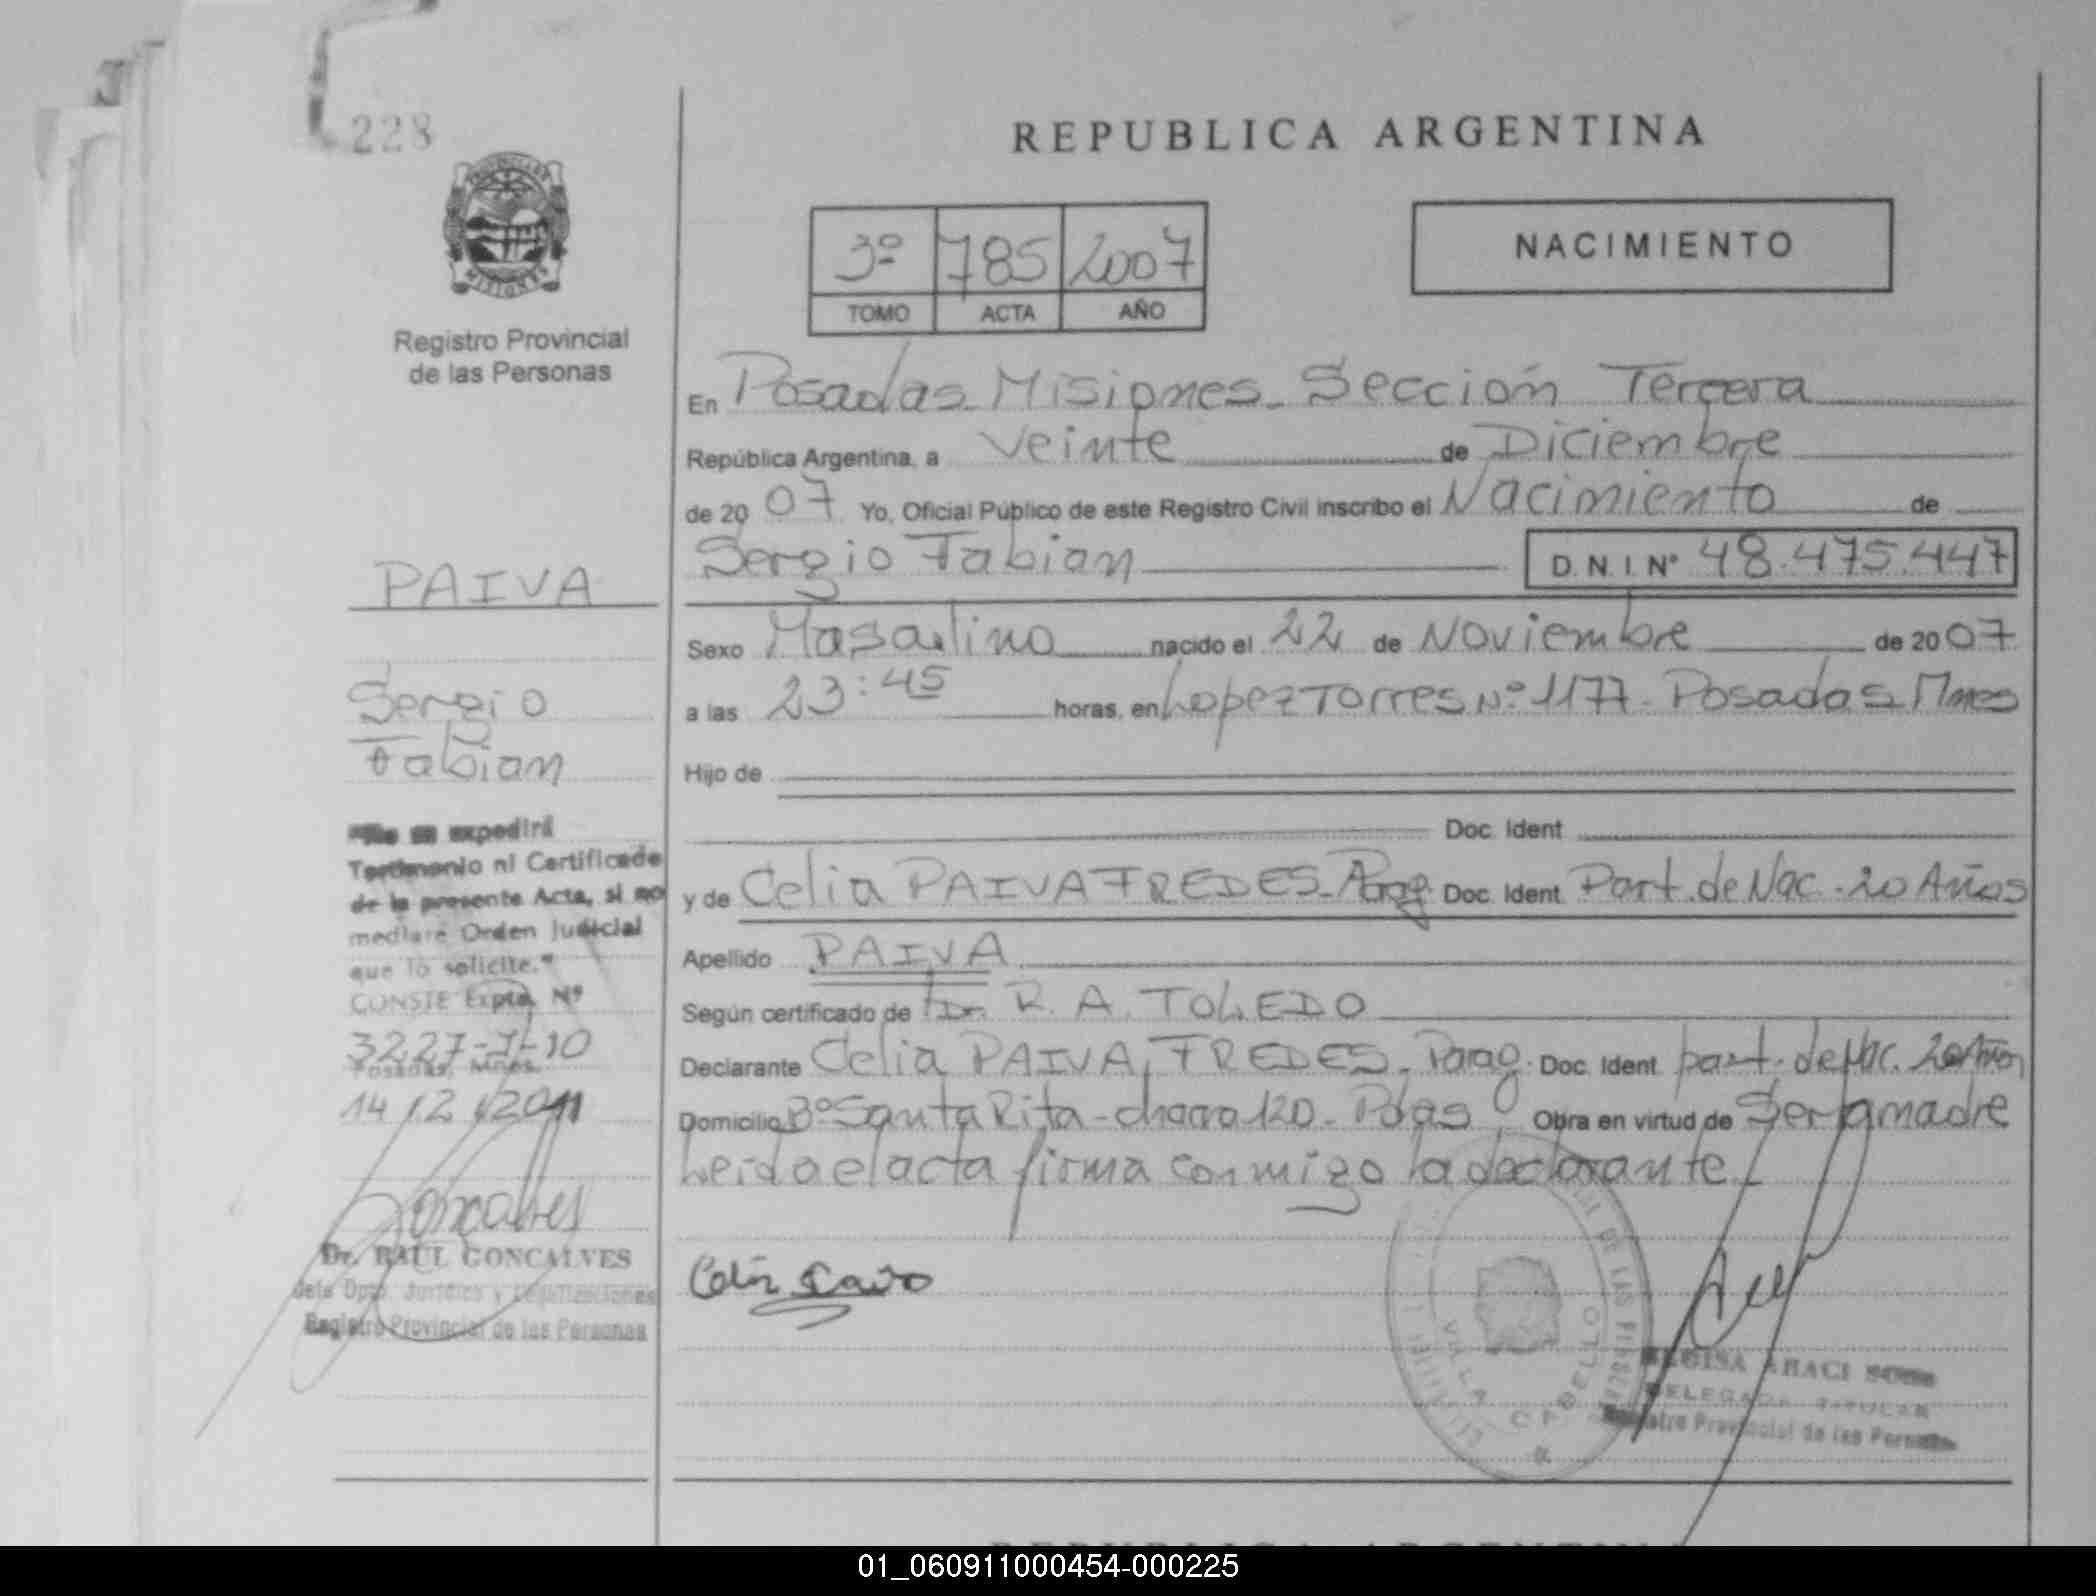 228
PROVINCIA DE
MISIONES
Registro Provincial
de las Personas
PAIVA
Sergio
Fabian
"No se expedirá
Testimonio ni Certificado
de la presente Acta, si no
mediare Orden Judicial
que lo solicite."
CONSTE Expte. Nº
3227-J-10
Posadas, Mnes.
14/12/2011
Goncalves
Dr. RAUL GONCALVES
Jefe Dpto. Jurídico y Legalizaciones
Registro Provincial de las Personas
REPUBLICA ARGENTINA
3º 785 2007
TOMO ACTA AÑO
NACIMIENTO
En Posadas Misiones - Sección Tercera
República Argentina, a veinte de Diciembre
de 2007 Yo, Oficial Público de este Registro Civil inscribo el Nacimiento de
Sergio Fabian D.N.I. Nº 48.475.447
Sexo Masculino nacido el 22 de Noviembre de 2007
a las 23:45 horas, en Lopez Torres Nº 1177 - Posadas Mnes
Hijo de
Doc. Ident
y de Celia PAIVA FREDES - Parag. Doc. Ident. Part. de Nac. - 20 Años
Apellido PAIVA
Según certificado de Dr. R. A. TOLEDO
Declarante Celia PAIVA FREDES - Parag. Doc. Ident. part. de Nac. 20 Años
Domicilio Bº Santa Rita - chacra 120 - Pdas Obra en virtud de Ser la madre
Leida el acta firma conmigo la declarante
DE LAS PERSONAS
VILLA CABELLO
ARACI
DELEGADA TITULAR
Registro Provincial de las Personas
REPUBLICA ARGENTINA
01_060911000454-000225